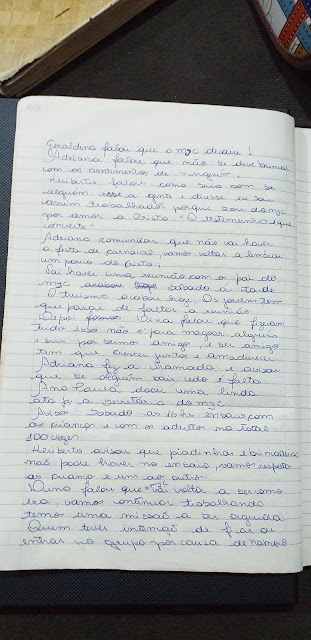 Geraldina falou que o mjc deceu!
Adriana falou que não se deve brincar
com os sentimentos de ninguém.
Heriberto falou como seria bom se
alguém visse a gnte e disse eu sou
assim trabalhador porque sou do mjc
por amor a Cristo. "O testemunho é que
converte"
Adriana comunicou que não vai haver
a festa de carnaval, vamos voltar a lembrar
um pouco de cristo!
Vai haver uma reunião com o pai do
mjc sábado a tarde
O turismo acabou hoje. Os jovens tem
que parar de faltar a reunião.
Depois Dina falou que fizeram
tudo isso não é para magoar alguém
e sim por sermos amigo, e ser amigo
tem que crescer juntos e amadurecer.
Adriana fez a chamada e avisou
que se alguém sair cedo é falta
Ana Paula doou uma linda
ata p/ a secretária do mjc.
Avisos Sabado as 16 hs ensaio com
as criança e com os adultos no total
100 vozes.
Heriberto avisou que piadinhas e brincadeiras
não pode haver no ensaio, vamos respeitar
as criança e um ao outro.
Dina falou que o mjc vai voltar a ser como
era, vamos continuar trabalhando
temos uma missão a ser seguida
Quem tiver intenção de ficar ou
entrar no grupo por causa de namoro